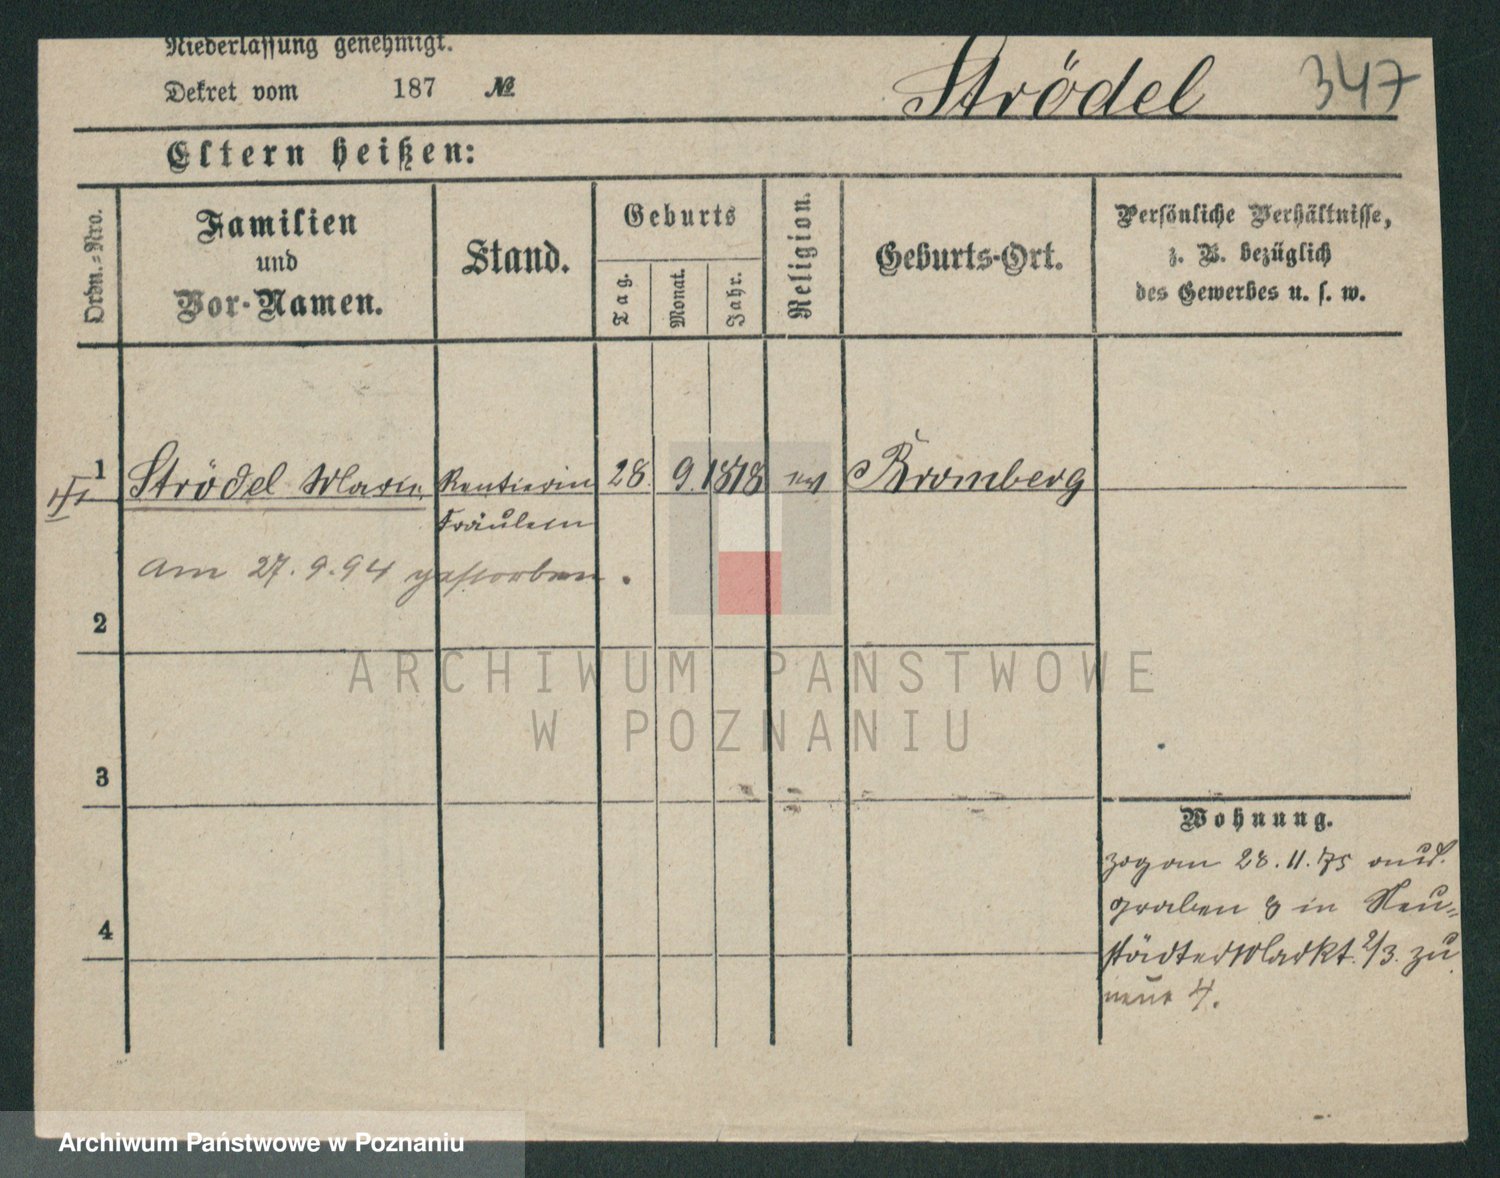 Niederlassung genehmigt.
Dekret vom 187 №
Strödel 347
Eltern heißen:
Ordn.-Nro.
Familien
und
Vor-Namen.
Stand.
Geburts
Tag.
Monat.
Jahr.
Religion.
Geburts-Ort.
Persönliche Verhältnisse,
z. B. bezüglich
des Gewerbes u. s. w.
1 Strödel Marie Rentierin 28. 9. 1818 ev Bromberg
Fräulein
am 27.9.94 gestorben.
2
ARCHIWUM PAŃSTWOWE
W POZNANIU
3
Wohnung.
zog am 28.11.75
graben 8 in Neu-
städter Markt 2/3. zu
4
4.
Archiwum Państwowe w Poznaniu